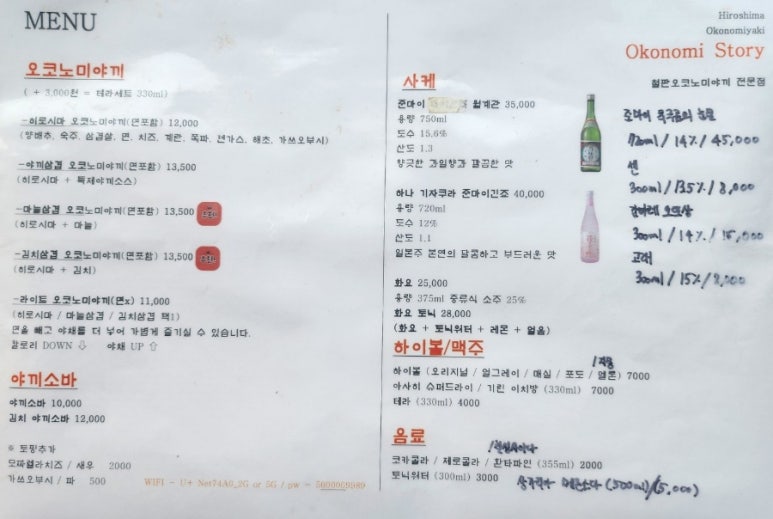 MENU
오코노미야끼
( + 3,000천 = 테라세트 330ml)
-히로시마 오코노미야끼(면포함) 12,000
(양배추, 숙주, 삼겹살, 면, 치즈, 계란, 쪽파, 텐가스, 해초, 가쓰오부시)
-야끼삼겹 오코노미야끼(면포함) 13,500
(히로시마 + 특제야끼소스)
-마늘삼겹 오코노미야끼(면포함) 13,500
(히로시마 + 마늘)
-김치삼겹 오코노미야끼(면포함) 13,500
(히로시마 + 김치)
-라이트 오코노미야끼(면x) 11,000
(히로시마 / 마늘삼겹 / 김치삼겹 택1)
면을 빼고 야채를 더 넣어 가볍게 즐기실 수 있습니다.
칼로리 DOWN ⇩ 야채 UP ⇧
야끼소바
야끼소바 10,000
김치 야끼소바 12,000
※ 토핑추가
모짜렐라치즈 / 새우 2000
가쓰오부시 / 파 500
WIFI - U+ Net74A0_2G or 5G / pw = 5000069989
Hiroshima
Okonomiyaki
Okonomi Story
철판오코노미야끼 전문점
사케
준마이 월계관 35,000
용량 750ml
도수 15.6%
산도 1.3
향긋한 과일향과 깔끔한 맛
하나 기자쿠라 준마이긴죠 40,000
용량 720ml
도수 12%
산도 1.1
일본주 본연의 달콤하고 부드러운 맛
화요 25,000
용량 375ml 증류식 소주 25%
화요 토닉 28,000
(화요 + 토닉워터 + 레몬 + 얼음)
준마이
720ml / 14% / 45,000
센
300ml / 13.5% / 8,000
간바레 오또상
300ml / 14% / 15,000
고래
300ml / 15% / 9,000
하이볼/맥주
/자몽
하이볼 (오리지널 / 얼그레이 / 매실 / 포도 / 멜론) 7000
아사히 슈퍼드라이 / 기린 이치방 (330ml) 7000
테라 (330ml) 4000
음료
/칠성사이다
코카콜라 / 제로콜라 / 환타파인 (355ml) 2000
토닉워터 (300ml) 3000 (500ml)/(5,000)